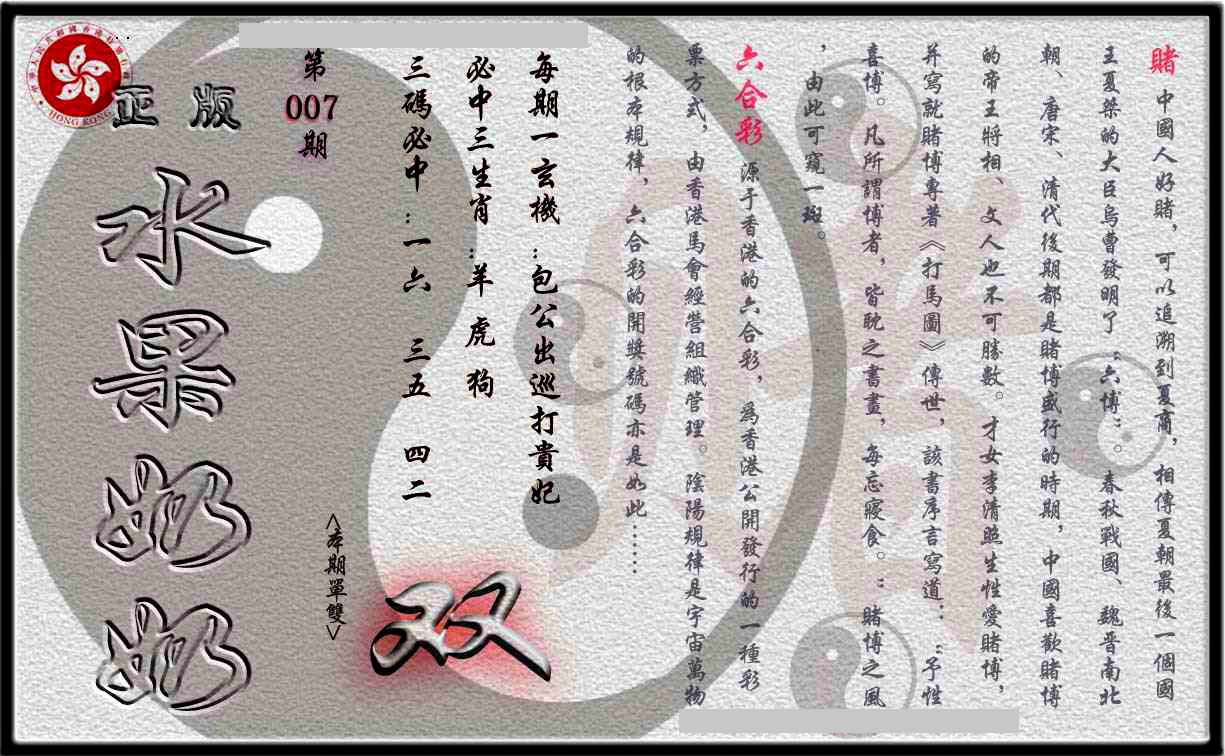 賭 中國人好賭，可以追溯到夏商，相傳夏朝最後一個國
王夏桀的大臣烏曹發明了“六博”。春秋戰國、魏晋南北
朝、唐宋、清代後期都是賭博盛行的時期，中國喜歡賭博
的帝王將相、文人也不可勝數。才女李清照生性愛賭博，
并寫就賭博專著《打馬圖》傳世，該書序言寫道：“予性
喜博。凡所謂博者，皆耽之書畫，每忘寢食。”賭博之風
，由此可窺一斑。
六合彩 源于香港的六合彩，爲香港公開發行的一種彩
票方式，由香港馬會經營組織管理。陰陽規律是宇宙萬物
的根本規律，六合彩的開獎號碼亦是如此……
每期一玄機：包公出巡打貴妃
必中三生肖：羊 虎 狗
三碼必中：一六 三五 四二
<本期單雙>
双
第
007
期
正版
水果奶奶
HONG KONG